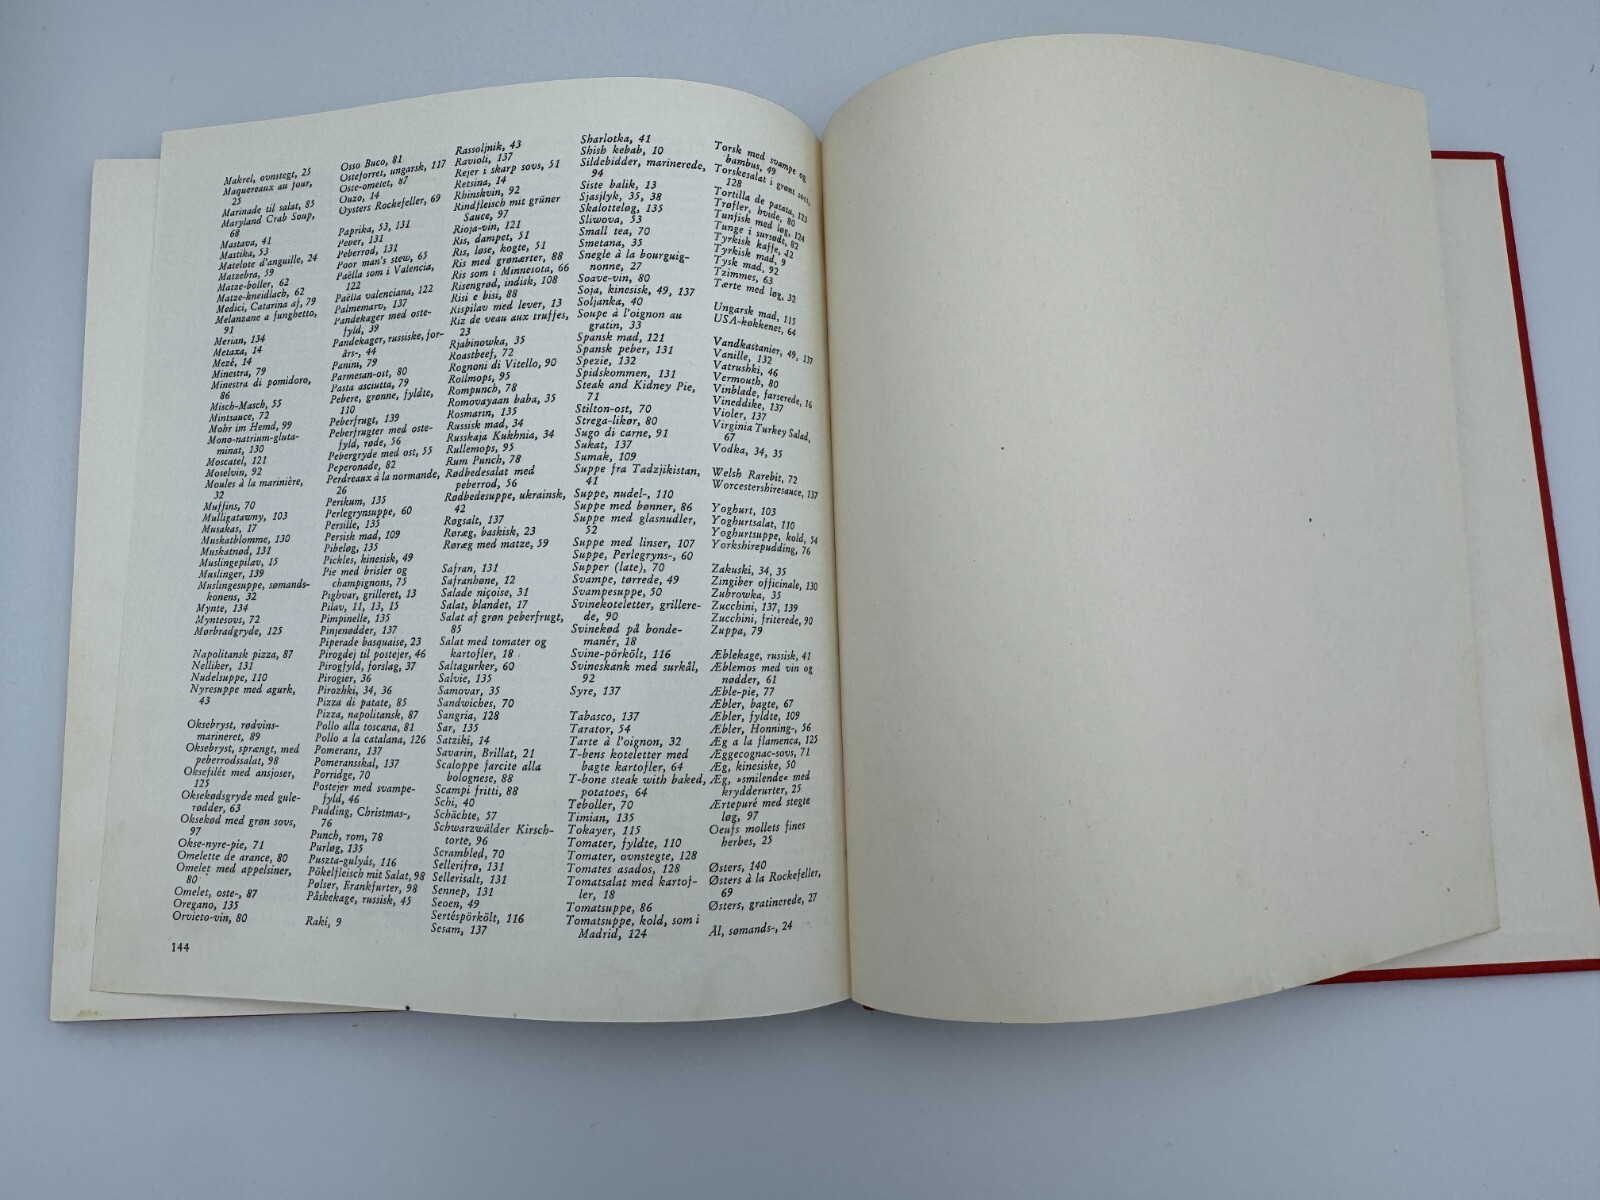 Makrel, ovnstegt, 25
Maquereaux au jour,
25
Marinade til salat, 85
Maryland Crab Soup,
68
Mastava, 41
Mastika, 53
Matelote d'anguille, 24
Matzebra, 59
Matze-boller, 62
Matze-kneidlach, 62
Medici, Catarina af, 79
Melanzane a funghetto,
91
Merian, 134
Metaxa, 14
Mezé, 14
Minestra, 79
Minestra di pomidoro,
86
Misch-Masch, 55
Mintsauce, 72
Mohr im Hemd, 99
Mono-natrium-gluta-
minat, 130
Moscatel, 121
Moselvin, 92
Moules à la marinière,
32
Muffins, 70
Mulligatawny, 103
Musakas, 17
Muskatblomme, 130
Muskatnød, 131
Muslingepilav, 15
Muslinger, 139
Muslingesuppe, sømands-
konens, 32
Mynte, 134
Myntesovs, 72
Mørbradgryde, 125
Napolitansk pizza, 87
Nelliker, 131
Nudelsuppe, 110
Nyresuppe med agurk,
43
Oksebryst, rødvins-
marineret, 89
Oksebryst, sprængt, med
peberrodssalat, 98
Oksefilét med ansjoser,
125
Oksekødsgryde med gule-
rødder, 63
Oksekød med grøn sovs,
97
Okse-nyre-pie, 71
Omelette de arance, 80
Omelet med appelsiner,
80
Omelet, oste-, 87
Oregano, 135
Orvieto-vin, 80
144
Osso Buco, 81
Osteforret, ungarsk, 117
Oste-omelet, 87
Ouzo, 14
Oysters Rockefeller, 69
Paprika, 53, 131
Peber, 131
Peberrod, 131
Poor man's stew, 65
Paëlla som i Valencia,
122
Paëlla valenciana, 122
Palmemarv, 137
Pandekager med oste-
fyld, 39
Pandekager, russiske, for-
års-, 44
Panini, 79
Parmesan-ost, 80
Pasta asciutta, 79
Pebere, grønne, fyldte,
110
Peberfrugt, 139
Peberfrugter med oste-
fyld, røde, 56
Pebergryde med ost, 55
Peperonade, 82
Perdreaux à la normande,
26
Perikum, 135
Perlegrynsuppe, 60
Persille, 135
Persisk mad, 109
Pibeløg, 135
Pickles, kinesisk, 49
Pie med brisler og
champignons, 75
Pighvar, grilleret, 13
Pilav, 11, 13, 15
Pimpinelle, 135
Pinjenødder, 137
Piperade basquaise, 23
Pirogdej til postejer, 46
Pirogfyld, forslag, 37
Pirogier, 36
Pirozhki, 34, 36
Pizza di patate, 85
Pizza, napolitansk, 87
Pollo alla toscana, 81
Pollo a la catalana, 126
Pomerans, 137
Pomeransskal, 137
Porridge, 70
Postejer med svampe-
fyld, 46
Pudding, Christmas-,
76
Punch, rom, 78
Purløg, 135
Puszta-gulyás, 116
Pökelfleisch mit Salat, 98
Pølser, Frankfurter, 98
Påskekage, russisk, 45
Raki, 9
Rassoljnik, 43
Ravioli, 137
Rejer i skarp sovs, 51
Retsina, 14
Rhinskvin, 92
Rindfleisch mit grüner
Sauce, 97
Rioja-vin, 121
Ris, dampet, 51
Ris, løse, kogte, 51
Ris med grønærter, 88
Ris som i Minnesota, 66
Risengrød, indisk, 108
Risi e bisi, 88
Rispilav med lever, 13
Riz de veau aux truffes,
23
Rjabinowka, 35
Roastbeef, 72
Rognoni di Vitello, 90
Rollmops, 95
Rompunch, 78
Romovayaan baba, 35
Rosmarin, 135
Russisk mad, 34
Russkaja Kukhnia, 34
Rullemops, 95
Rum Punch, 78
Rødbedesalat med
peberrod, 56
Rødbedesuppe, ukrainsk,
42
Røgsalt, 137
Røræg, baskisk, 23
Røræg med matze, 59
Safran, 131
Safranhøne, 12
Salade niçoise, 31
Salat, blandet, 17
Salat af grøn peberfrugt,
85
Salat med tomater og
kartofler, 18
Saltagurker, 60
Salvie, 135
Samovar, 35
Sandwiches, 70
Sangria, 128
Sar, 135
Satziki, 14
Savarin, Brillat, 21
Scaloppe farcite alla
bolognese, 88
Scampi fritti, 88
Schi, 40
Schächte, 57
Schwarzwälder Kirsch-
torte, 96
Scrambled, 70
Sellerifrø, 131
Sellerisalt, 131
Sennep, 131
Seoen, 49
Sertéspörkölt, 116
Sesam, 137
Sharlotka, 41
Shish kebab, 10
Sildebidder, marinerede,
94
Siste balik, 13
Sjasjlyk, 35, 38
Skalotteløg, 135
Sliwova, 53
Small tea, 70
Smetana, 35
Snegle à la bourguig-
nonne, 27
Soave-vin, 80
Soja, kinesisk, 49, 137
Soljanka, 40
Soupe à l'oignon au
gratin, 33
Spansk mad, 121
Spansk peber, 131
Spezie, 132
Spidskommen, 131
Steak and Kidney Pie,
71
Stilton-ost, 70
Strega-likør, 80
Sugo di carne, 91
Sukat, 137
Sumak, 109
Suppe fra Tadzjikistan,
41
Suppe, nudel-, 110
Suppe med bønner, 86
Suppe med glasnudler,
52
Suppe med linser, 107
Suppe, Perlegryns-, 60
Supper (late), 70
Svampe, tørrede, 49
Svampesuppe, 50
Svinekoteletter, grillere-
de, 90
Svinekød på bonde-
manér, 18
Svine-pörkölt, 116
Svineskank med surkål,
92
Syre, 137
Tabasco, 137
Tarator, 54
Tarte à l'oignon, 32
T-bens koteletter med
bagte kartofler, 64
T-bone steak with baked,
potatoes, 64
Teboller, 70
Timian, 135
Tokayer, 115
Tomater, fyldte, 110
Tomater, ovnstegte, 128
Tomates asados, 128
Tomatsalat med kartof-
ler, 18
Tomatsuppe, 86
Tomatsuppe, kold, som i
Madrid, 124
Torsk med svampe og
bambus, 49
Torskesalat i grønt svøb,
128
Tortilla de patata, 123
Trøfler, hvide, 80
Tunfisk med løg, 124
Tunge i sursødt, 82
Tyrkisk kaffe, 42
Tyrkisk mad, 9
Tysk mad, 92
Tzimmes, 63
Tærte med løg, 32
Ungarsk mad, 115
USA-køkkenet, 64
Vandkastanier, 49, 137
Vanille, 132
Vatrushki, 46
Vermouth, 80
Vinblade, farserede, 16
Vineddike, 137
Violer, 137
Virginia Turkey Salad,
67
Vodka, 34, 35
Welsh Rarebit, 72
Worcestershiresauce, 137
Yoghurt, 103
Yoghurtsalat, 110
Yoghurtsuppe, kold, 54
Yorkshirepudding, 76
Zakuski, 34, 35
Zingiber officinale, 130
Zubrowka, 35
Zucchini, 137, 139
Zucchini, friterede, 90
Zuppa, 79
Æblekage, russisk, 41
Æblemos med vin og
nødder, 61
Æble-pie, 77
Æbler, bagte, 67
Æbler, fyldte, 109
Æbler, Honning-, 56
Æg a la flamenca, 125
Æggecognac-sovs, 71
Æg, kinesiske, 50
Æg, »smilende« med
krydderurter, 25
Ærtepuré med stegte
løg, 97
Oeufs mollets fines
herbes, 25
Østers, 140
Østers à la Rockefeller,
69
Østers, gratinerede, 27
Ål, sømands-, 24